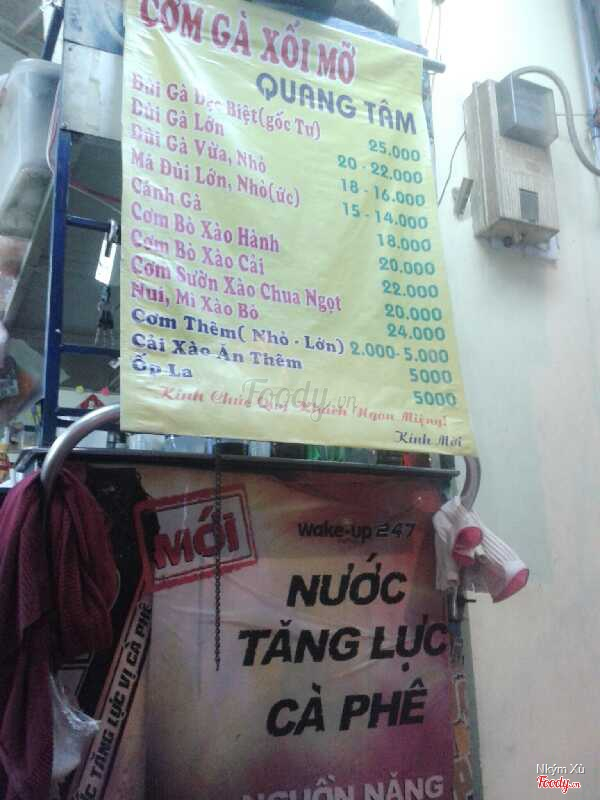 CƠM GÀ XỐI MỠ
QUANG TÂM
Đùi Gà Đặc Biệt(gốc Tư) 25.000
Đùi Gà Lớn 20 - 22.000
Đùi Gà Vừa, Nhỏ 18 - 16.000
Má Đùi Lớn, Nhỏ(ức) 15 - 14.000
Cánh Gà 18.000
Cơm Bò Xào Hành 20.000
Cơm Bò Xào Cải 22.000
Cơm Sườn Xào Chua Ngọt 20.000
Nui, Mì Xào Bò 24.000
Cơm Thêm( Nhỏ - Lớn) 2.000- 5.000
Cải Xào Ăn Thêm 5000
Ốp La 5000
Foody.vn
Kính Chúc Quý Khách Ngon Miệng!
Kính Mời
MỚI
Wake-up 247
NƯỚC
TĂNG LỰC
CÀ PHÊ
NƯỚC TĂNG LỰC VỊ CÀ PHÊ
NGUỒN NĂNG
Nkým Xù
Foody.vn